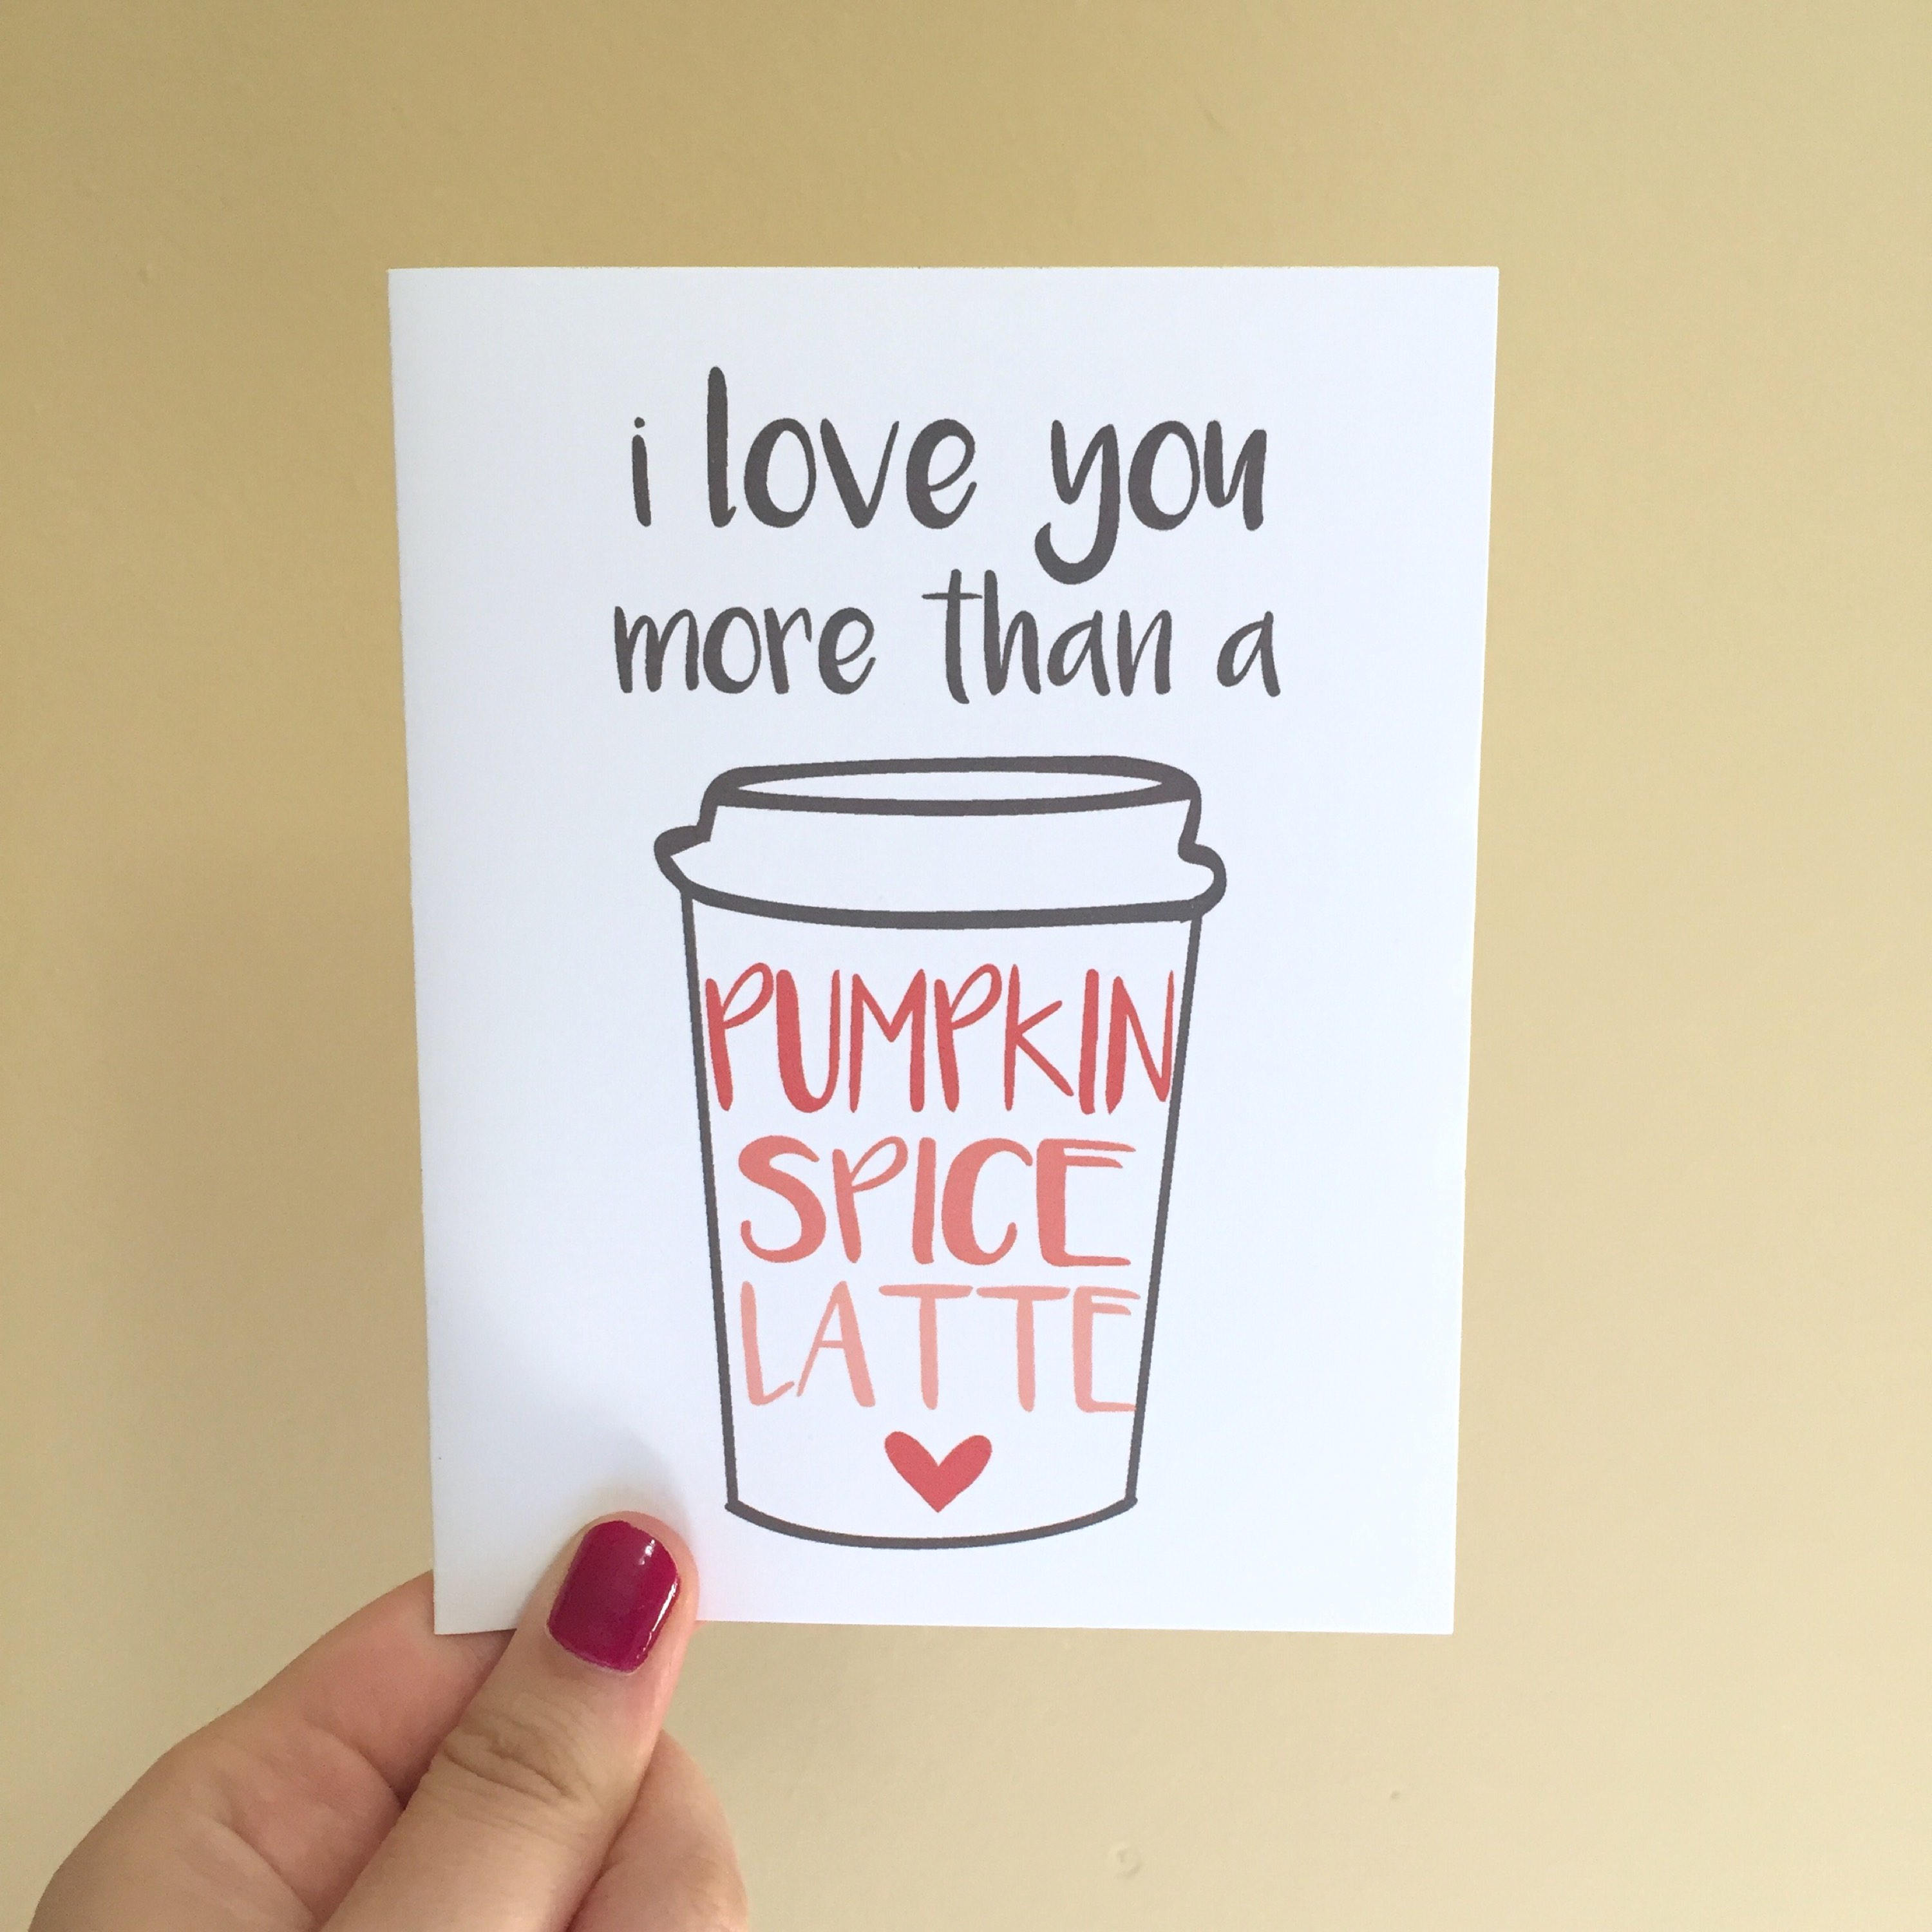 i love you
more than a
PUMPKIN
SPICE
LATTE